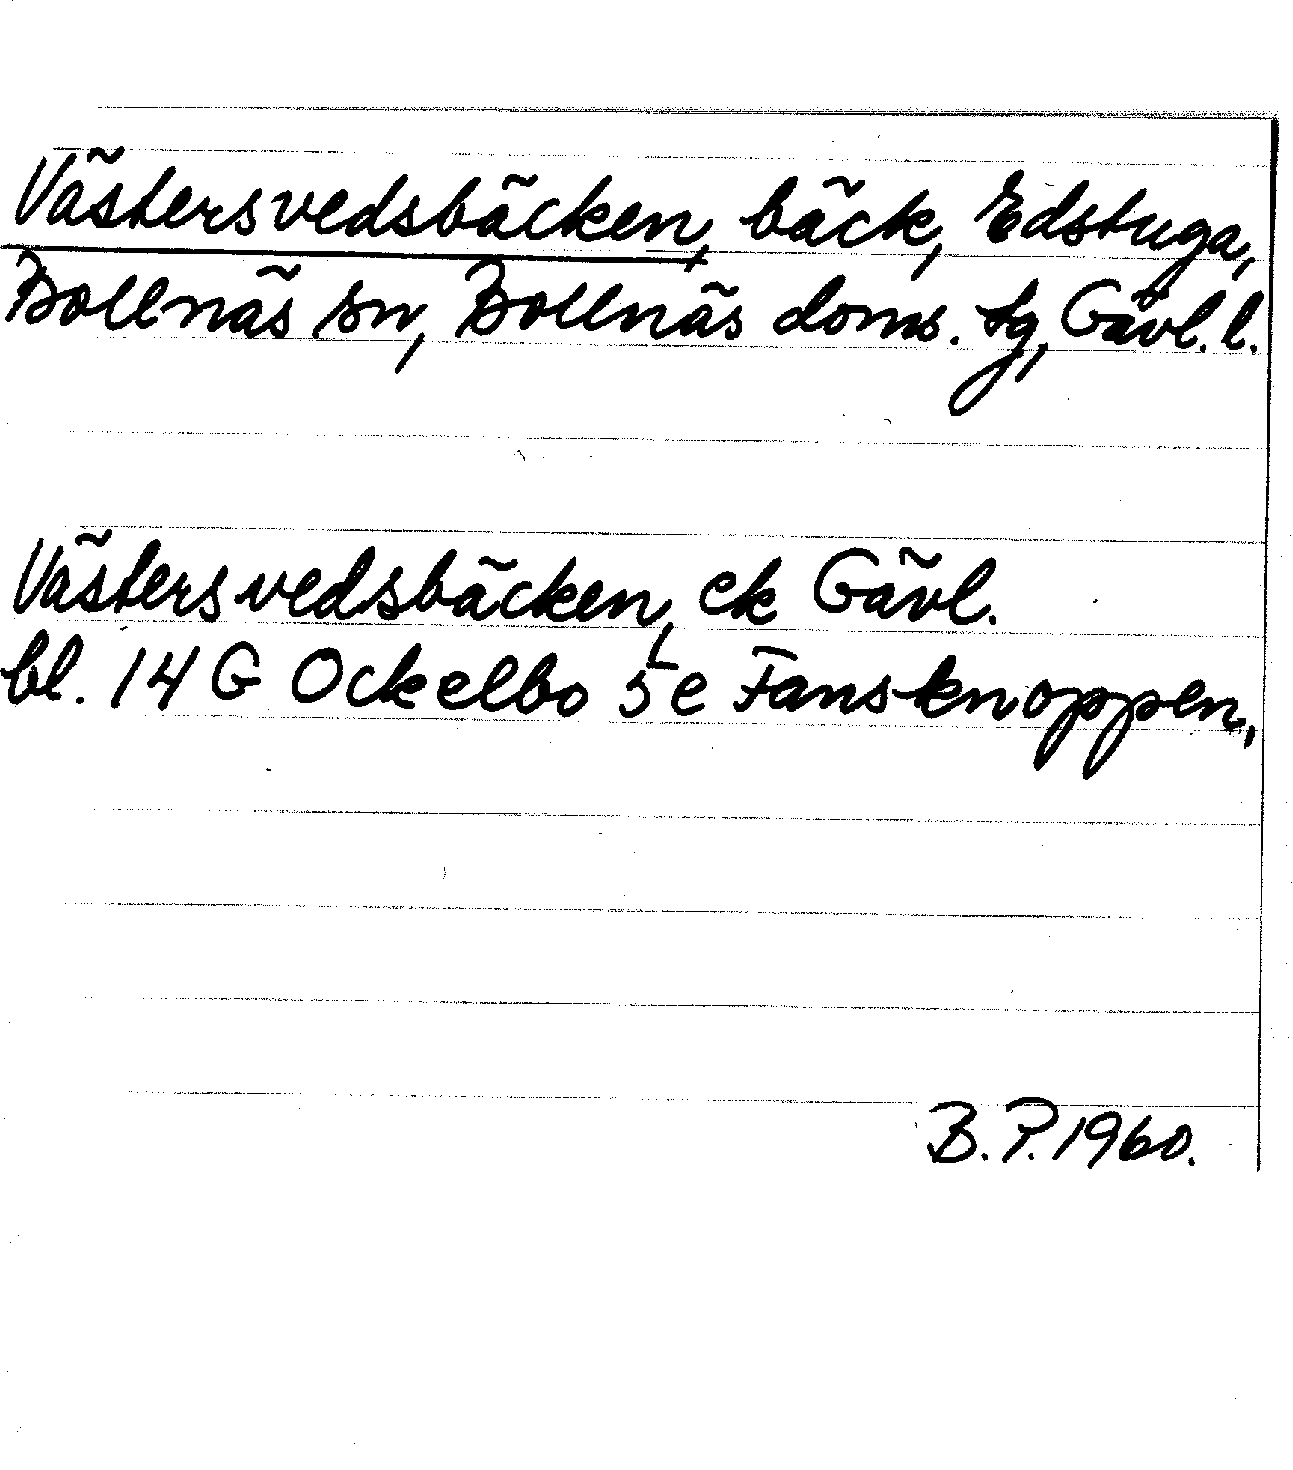 Västersvedsbäcken, bäck, Edstuga,
Bollnäs sn, Bollnäs doms. tg, Gävl. l.
Västersvedsbäcken, ek Gävl.
bl. 14 G Ockelbo 5 e Fansknoppen,
B. P. 1960.